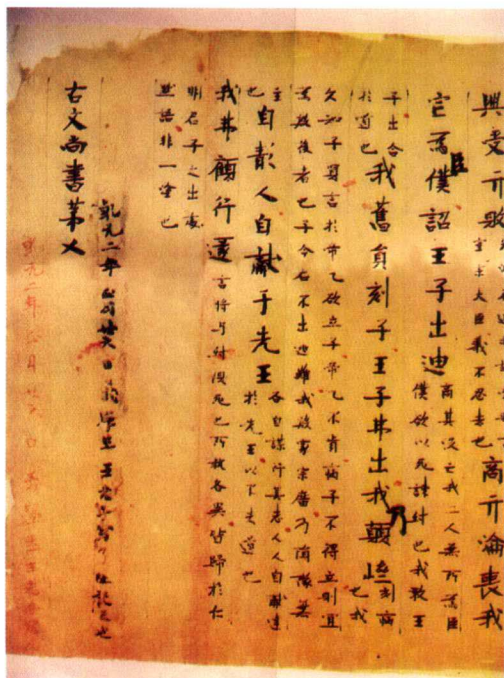 興受亓敗
宗大臣義不忍去也
商亓淪喪我
爲臣僕詔王子出迪
商其沒亡我二人無所爲臣
僕欲以死諫紂也我敎王
子出合
於道也
我舊員刻子王子弗出我乃顛隮
刻病
也我
久知子賢言於帝乙欲立子帝乙不肯病子不得立則宜
爲殷後者也子今若不出逃難我殷家宗廟乃隕墜無
主
也
自彰人自獻于先王
各自謀行其志人人自獻達
於先王以不失道也
我弗顧行遯
言將与紂俱死也所執各異皆歸於仁
明君子之出處
語非一塗也
古文尚書第五
乾元二年正月廿六日義學生王老子寫了故記之也
乾元二年正月廿六日義學生王老子